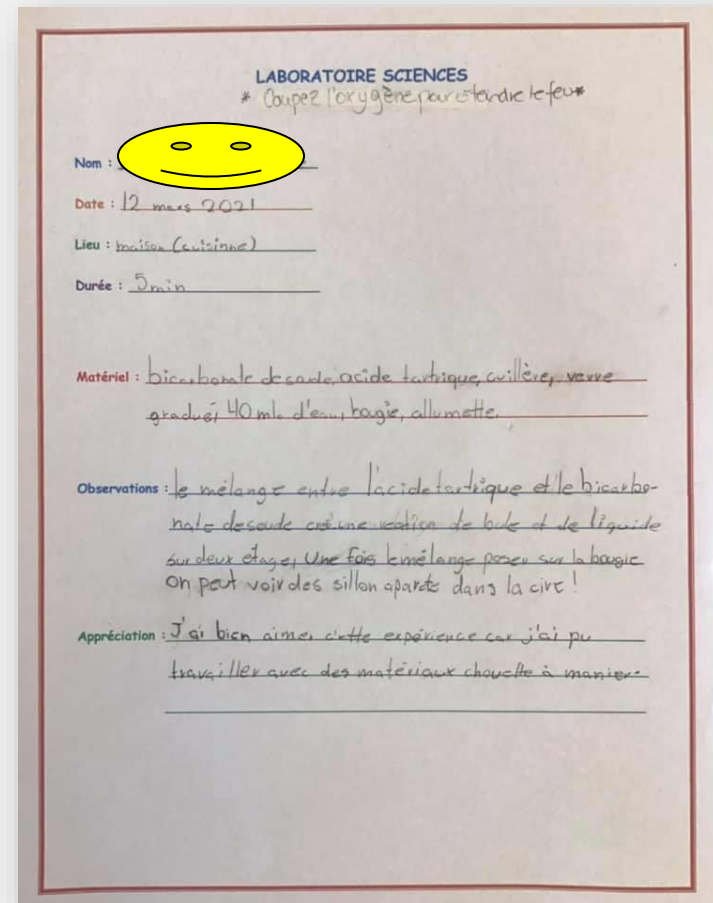 LABORATOIRE SCIENCES
* Coupez l'oxygène pour éteindre le feu*
Nom :
Date : 12 mars 2021
Lieu : maison (cuisinne)
Durée : 5 min
Matériel : bicarbonate de soude, acide tartrique, cuillère, verre
gradué, 40 ml. d'eau, bougie, allumette.
Observations : le mélange entre l'acide tartrique et le bicarbo-
nate de soude cré une réation de bule et de liquide
sur deux étage, Une fois le mélange poser sur la bougie
on peut voir des sillon aparète dans la cire !
Appréciation : J'ai bien aimer cette expérience car j'ai pu
travailler avec des matériaux chouette à manier.